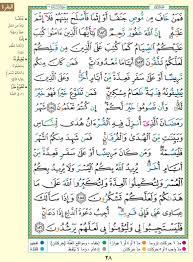 البقرة
فَمَنْ خَافَ مِن مُّوصٍ جَنَفًا أَوْ إِثْمًا فَأَصْلَحَ بَيْنَهُمْ فَلَآ إِثْمَ
عَلَيْهِ إِنَّ ٱللَّهَ غَفُورٌ رَّحِيمٌ ١٨٢ يَٰٓأَيُّهَا ٱلَّذِينَ ءَامَنُوا۟ كُتِبَ
عَلَيْكُمُ ٱلصِّيَامُ كَمَا كُتِبَ عَلَى ٱلَّذِينَ مِن قَبْلِكُمْ
لَعَلَّكُمْ تَتَّقُونَ ١٨٣ أَيَّامًا مَّعْدُودَٰتٍ فَمَن كَانَ مِنكُم
مَّرِيضًا أَوْ عَلَىٰ سَفَرٍ فَعِدَّةٌ مِّنْ أَيَّامٍ أُخَرَ وَعَلَى ٱلَّذِينَ
يُطِيقُونَهُۥ فِدْيَةٌ طَعَامُ مِسْكِينٍ فَمَن تَطَوَّعَ خَيْرًا فَهُوَ
خَيْرٌ لَّهُۥ وَأَن تَصُومُوا۟ خَيْرٌ لَّكُمْ إِن كُنتُمْ تَعْلَمُونَ ١٨٤
شَهْرُ رَمَضَانَ ٱلَّذِىٓ أُنزِلَ فِيهِ ٱلْقُرْءَانُ هُدًى
لِّلنَّاسِ وَبَيِّنَٰتٍ مِّنَ ٱلْهُدَىٰ وَٱلْفُرْقَانِ فَمَن شَهِدَ مِنكُمُ
ٱلشَّهْرَ فَلْيَصُمْهُ وَمَن كَانَ مَرِيضًا أَوْ عَلَىٰ سَفَرٍ فَعِدَّةٌ
مِّنْ أَيَّامٍ أُخَرَ يُرِيدُ ٱللَّهُ بِكُمُ ٱلْيُسْرَ وَلَا يُرِيدُ بِكُمُ
ٱلْعُسْرَ وَلِتُكْمِلُوا۟ ٱلْعِدَّةَ وَلِتُكَبِّرُوا۟ ٱللَّهَ عَلَىٰ مَا هَدَىٰكُمْ
وَلَعَلَّكُمْ تَشْكُرُونَ ١٨٥ وَإِذَا سَأَلَكَ عِبَادِى عَنِّى
فَإِنِّى قَرِيبٌ أُجِيبُ دَعْوَةَ ٱلدَّاعِ إِذَا دَعَانِ
فَلْيَسْتَجِيبُوا۟ لِى وَلْيُؤْمِنُوا۟ بِى لَعَلَّهُمْ يَرْشُدُونَ ١٨٦
٢٨